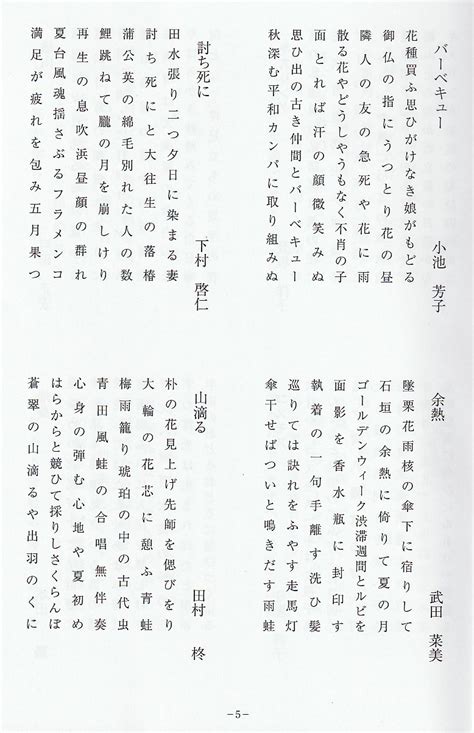 バーベキュー　小池　芳子
花種買ふ思ひがけなき娘がもどる
御仏の指にうつとり花の昼
隣人の友の急死や花に雨
散る花やどうしやうもなく不肖の子
面とれば汗の顔微笑みぬ
思ひ出の古き仲間とバーベキュー
秋深む平和カンパに取り組みぬ
討ち死に　下村　啓仁
田水張り二つ夕日に染まる妻
討ち死にと大往生の落椿
蒲公英の綿毛別れた人の数
鯉跳ねて朧の月を崩しけり
再生の息吹浜昼顔の群れ
夏台風魂揺さぶるフラメンコ
満足が疲れを包み五月果つ
余熱　武田　菜美
墜栗花雨核の傘下に宿りして
石垣の余熱に倚りて夏の月
ゴールデンウィーク渋滞週間とルビを
面影を香水瓶に封印す
執着の一句手離す洗ひ髪
巡りては訣れをふやす走馬灯
傘干せばついと鳴きだす雨蛙
山滴る　田村　柊
朴の花見上げ先師を偲びをり
大輪の花芯に憩ふ青蛙
梅雨籠り琥珀の中の古代虫
青田風蛙の合唱無伴奏
心身の弾む心地や夏初め
はらからと競ひて採りしさくらんぼ
蒼翠の山滴るや出羽のくに
-5-